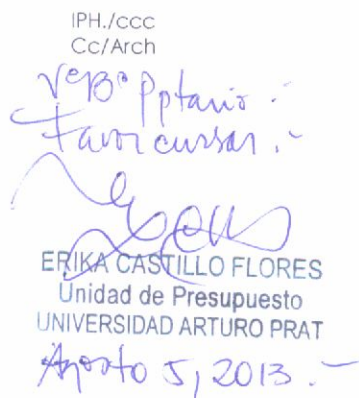 IPH./ccc
Cc/Arch
VºBº Pptario.-
Favor cursar.-
ERIKA CASTILLO FLORES
Unidad de Presupuesto
UNIVERSIDAD ARTURO PRAT
Agosto 5, 2013.-